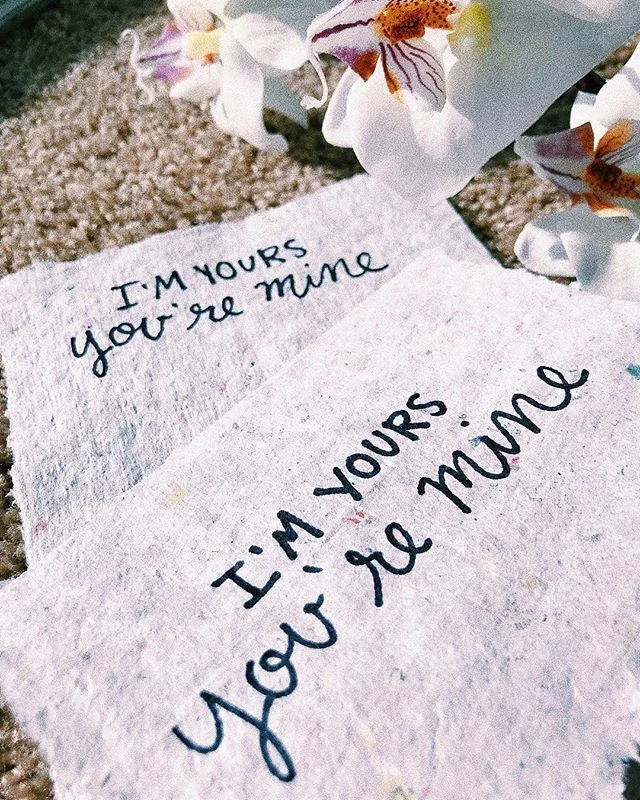 I'M YOURS
you're mine
I'M YOURS
you're mine